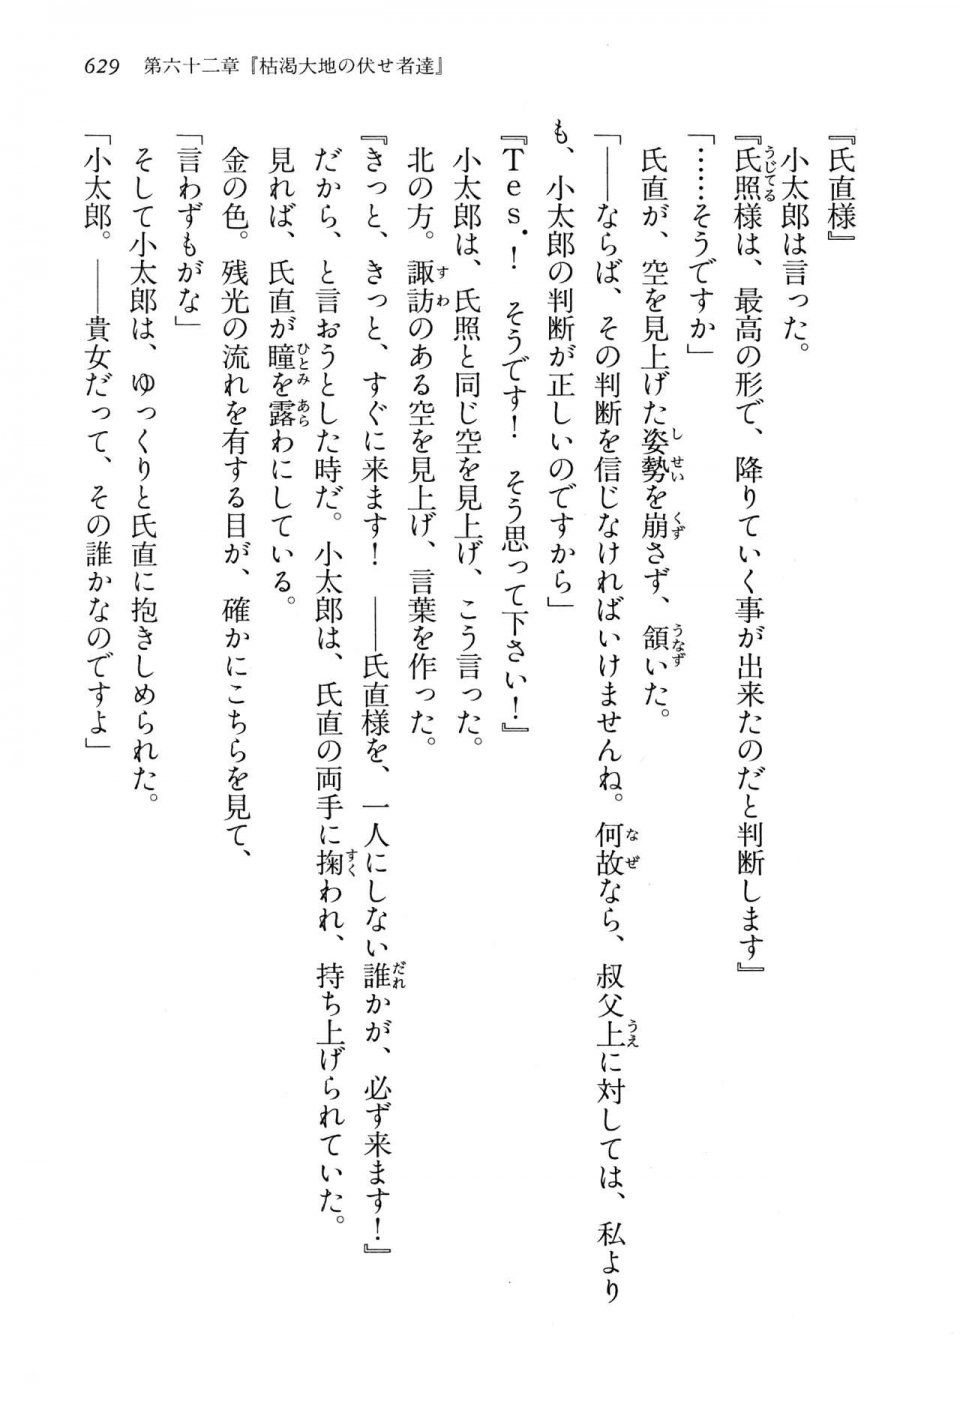 629　第六十二章『枯渇大地の伏せ者達』
『氏直様』
　小太郎は言った。
『氏照様は、最高の形で、降りていく事が出来たのだと判断します』
「……そうですか」
　氏直が、空を見上げた姿勢を崩さず、頷いた。
「――ならば、その判断を信じなければいけませんね。何故なら、叔父上に対しては、私より
も、小太郎の判断が正しいのですから」
『Tes.！　そうです！　そう思って下さい！』
　小太郎は、氏照と同じ空を見上げ、こう言った。
　北の方。諏訪のある空を見上げ、言葉を作った。
『きっと、きっと、すぐに来ます！　――氏直様を、一人にしない誰かが、必ず来ます！』
　だから、と言おうとした時だ。小太郎は、氏直の両手に掬われ、持ち上げられていた。
　見れば、氏直が瞳を露わにしている。
　金の色。残光の流れを有する目が、確かにこちらを見て、
「言わずもがな」
　そして小太郎は、ゆっくりと氏直に抱きしめられた。
「小太郎。――貴女だって、その誰かなのですよ」